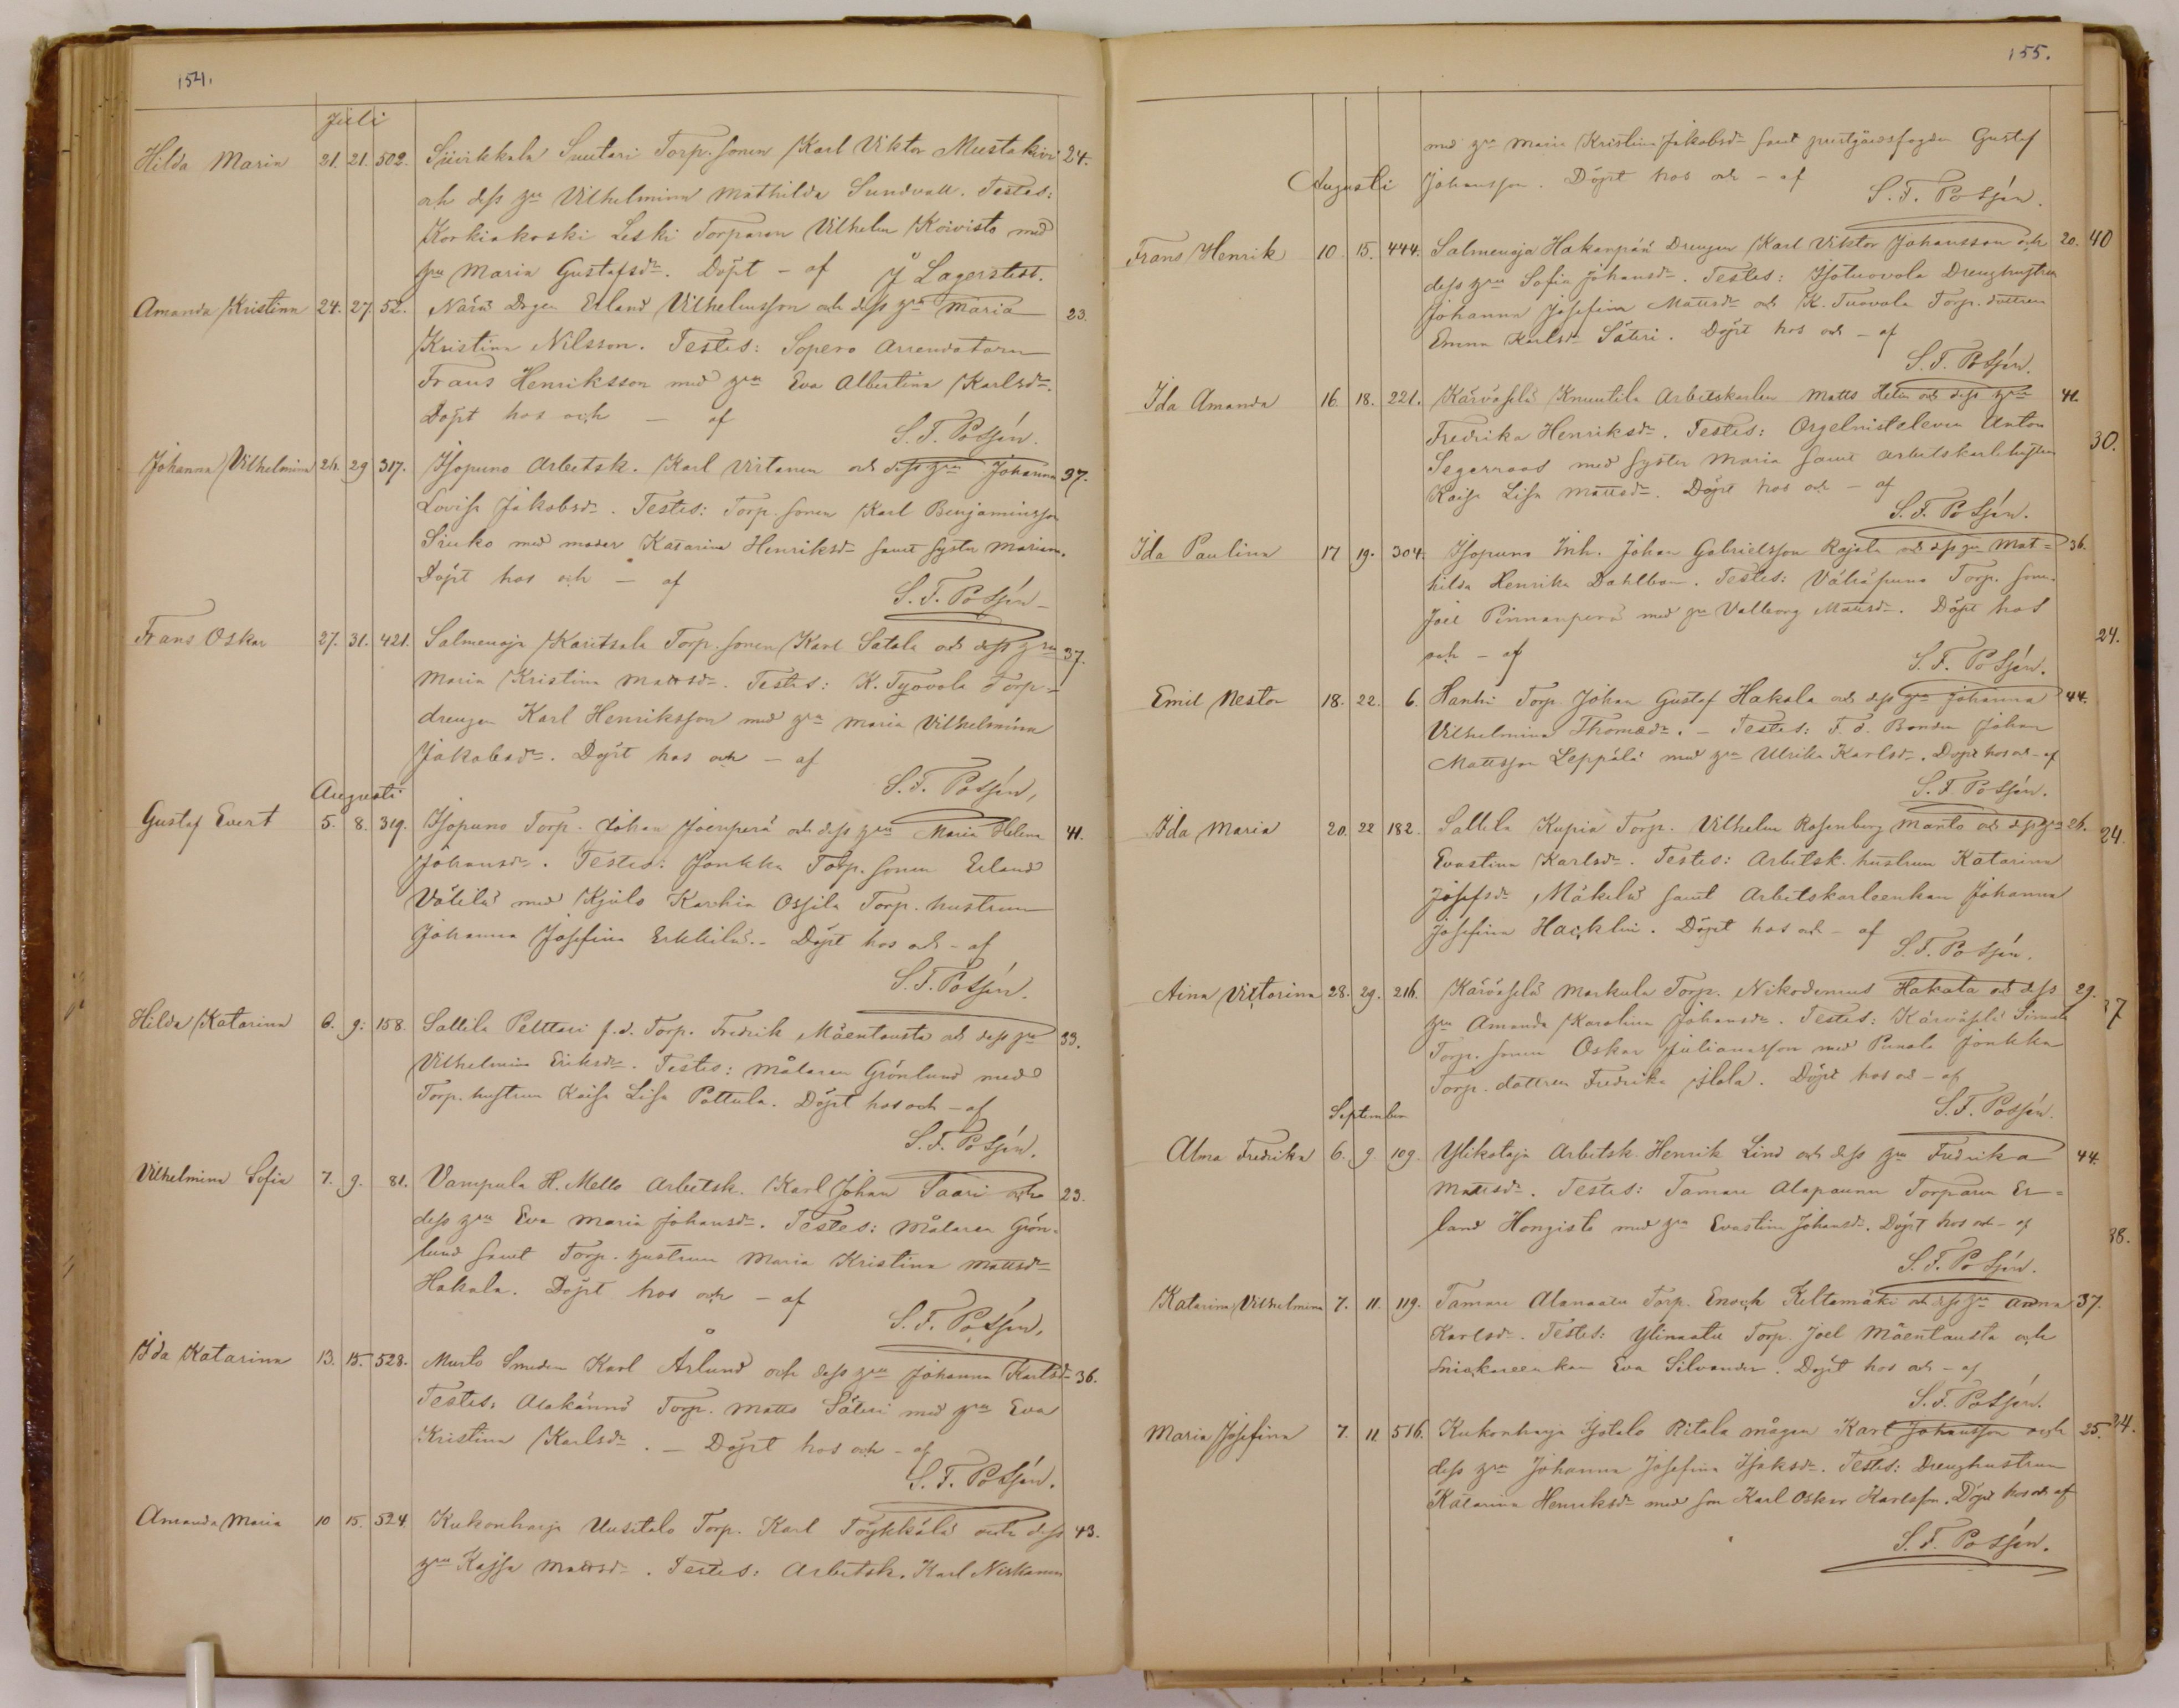 154.
Juli
Hilda Maria 21. 21. 502. Siivikkala Suutari Torp. sonen Karl Viktor Mustakivi 24.
och dess hu Vilhelmina Mathilda Sundvall. Testes:
Korkiakoski Leski Torparen Vilhelm Koivisto med
hu Maria Gustafsdr. Döpt - af J Lagerstedt.
Amanda Kristina 24. 27. 52. Dregen Erland Vilhelmsson och dess hu Maria 23.
Kristina Nilsson. Testes: Sopero Arrendatorn
Frans Henriksson med hu Eva Albertina Karlsdr.
Döpt hos och - af
S. F. Possén.
Johanna Vilhelmina 26. 29 317. Isopuno Arbetsk. Karl Virtanen och dess hu Johanna 37.
Lovisa Jakobsdr. Testes: Torp. sonen Karl Benjaminsson
Siuko med moder Katarina Henriksdr samt syster Mariana.
Döpt hos och - af
S. F. Possén
Frans Oskar 27. 31. 421. Salmenoja Karitsala Torp. sonen Karl Satala och dess hu 37.
Maria Kristina Mattsdr. Testes: K. Tyovola Torp=
drengen Karl Henriksson med hu Maria Vilhelmina
Jakobsdr. Döpt hos och - af
S. F. Possén.
Augusti
Gustaf Evert 5. 8. 319. Isopuno Torp. Johan Joenperä och dess hu Maria Helena 41.
Johansdr. Testes: Jonkka Torp. sonen Erland
Välilä med Kjulo Karhia Ossila Torp. hustrun
Johanna Josefina Erkkilä. - Döpt hos och - af
S. F. Possén.
Hilda Katarina 6. 9. 158. Sallila Pelttari f.d. Torp. Fredrik Mäentausta och dess hu 33.
Vilhelmina Eriksdr. Testes: Målaren Grönlund med
Torp. hustrun Kaisa Lisa Pottula. Döpt hos och - af
S. F. Possén.
Vilhelmina Sofia 7. 9. 81. Vampula H. Mello Arbetsk. Karl Johan Saari och 23.
dess hu Eva Maria Johansdr. Testes: Målaren Grön-
lund samt Torp. hustrun Maria Kristina Mattsdr
Hakala. Döpt hos och - af
S. F. Possén.
Ida Katarina 13. 15. 528. Murto Smeden Karl Arlund och dess hu Johanna Karlsdr 36.
Testes: Alakännö Torp. Matts Säteri med hu Eva
Kristina Karlsdr. - Döpt hos och - af
S. F. Possén.
Amanda Maria 10 15. 524. Kukonharja Uusitalo Torp. Karl Töykkälä och dess 43.
hu Kajsa Mattsdr. Testes: Arbetsk. Karl Niskanen
155.
med hu Maria Kristina Jakobsdr samt prestgårdsfogden Gustaf
Augusti Johansson. Döpt hos och - af
S. F. Possén.
Frans Henrik 10. 15. 444. Salmenoja Hakanpää Drengen Karl Viktor Johansson och 20. 40
dess hu Sofia Johansdr. Testes: Isotuovola Drenghustrun
Johanna Josefina Mattsdr och K. Tuovola Torp. dottren
Emma Karlsdr Säteri. Döpt hos och - af
S. F. Possén.
Ida Amanda 16. 18. 221. Kärväselä Knuutila Arbetskarlen Matts Helin och dess hu 41.
Fredrika Henriksdr. Testes: Orgelnisteleven Anton 30.
Segerroos med syster Maria samt arbetskarlshustrun
Kaisa Lisa Mattsdr. Döpt hos och - af
S. F. Possén.
Ida Paulina 17 19. 304. Isopuno Inh. Johan Gabrielsson Rajala och dess hu Mat= 36.
hilda Henrika Dahlbom. Testes: Torp. sonen
Joel Pinnanperä med hu Valborg Mattsdr. Döpt hos
och - af 24.
S. F. Possén.
Emil Nestor 18. 22. 6. Hanhi Torp. Johan Gustaf Hakala och dess hu Johanna 44.
Vilhelmina Thomasdr. - Testes: F. d. Bonden Johan
Mattsson Leppälä med hu Ulrika Karlsdr. Döpt hos och - af
S. F. Possén.
Ida Maria 20. 22 182. Sallila Kupia Torp. Vilhelm Rosenberg Manto och dess hu 26. 24.
Evastina Karlsdr. Testes: Arbetsk. hustrun Katarina
Josefsdr Mäkelä samt Arbetskarlsenkan Johanna
Josefina Hacklin. Döpt hos och - af
S. F. Possén.
Aina Viktorina 28. 29. 216. Kärväselä Markula Torp. Nikodemus Hakala och dess 29. 37
hu Amanda Karolina Johansdr. Testes: Kärväselä Simula
Torp. sonen Oskar Juliansson med Punola Jonkka
Torp. dottren Fredrika Isola. Döpt hos och - af
S. F. Possén.
September
Alma Fredrika 6. 9. 109. Ylikotaja Arbetsk. Henrik Lind och dess hu Fredrika 44.
Mattsdr. Testes: Tamare Alapaunu Torparen Er=
land Hongisto med hu Evastina Johansdr. Döpt hos och - af 38.
S. F. Possén.
Katarina Vilhelmina 7. 11. 119. Tamare Alanaatu Torp. Enoch Keltamäki och dess hu Anna 37.
Karlsdr. Testes: Ylinaatu Torp. Joel Mäentausta och
Snickareenkan Eva Silvander. Döpt hos och - af
S. F. Possén.
Maria Josefina 7. 11 516. Kukonharja Isotalo Ritala mågen Karl Johansson och 25. 24.
dess hu Johanna Josefina Isaksdr. Testes: Drenghustrun
Katarina Henriksdr med son Karl Oskar Karlsson. Döpt hos och af
S. F. Possén.